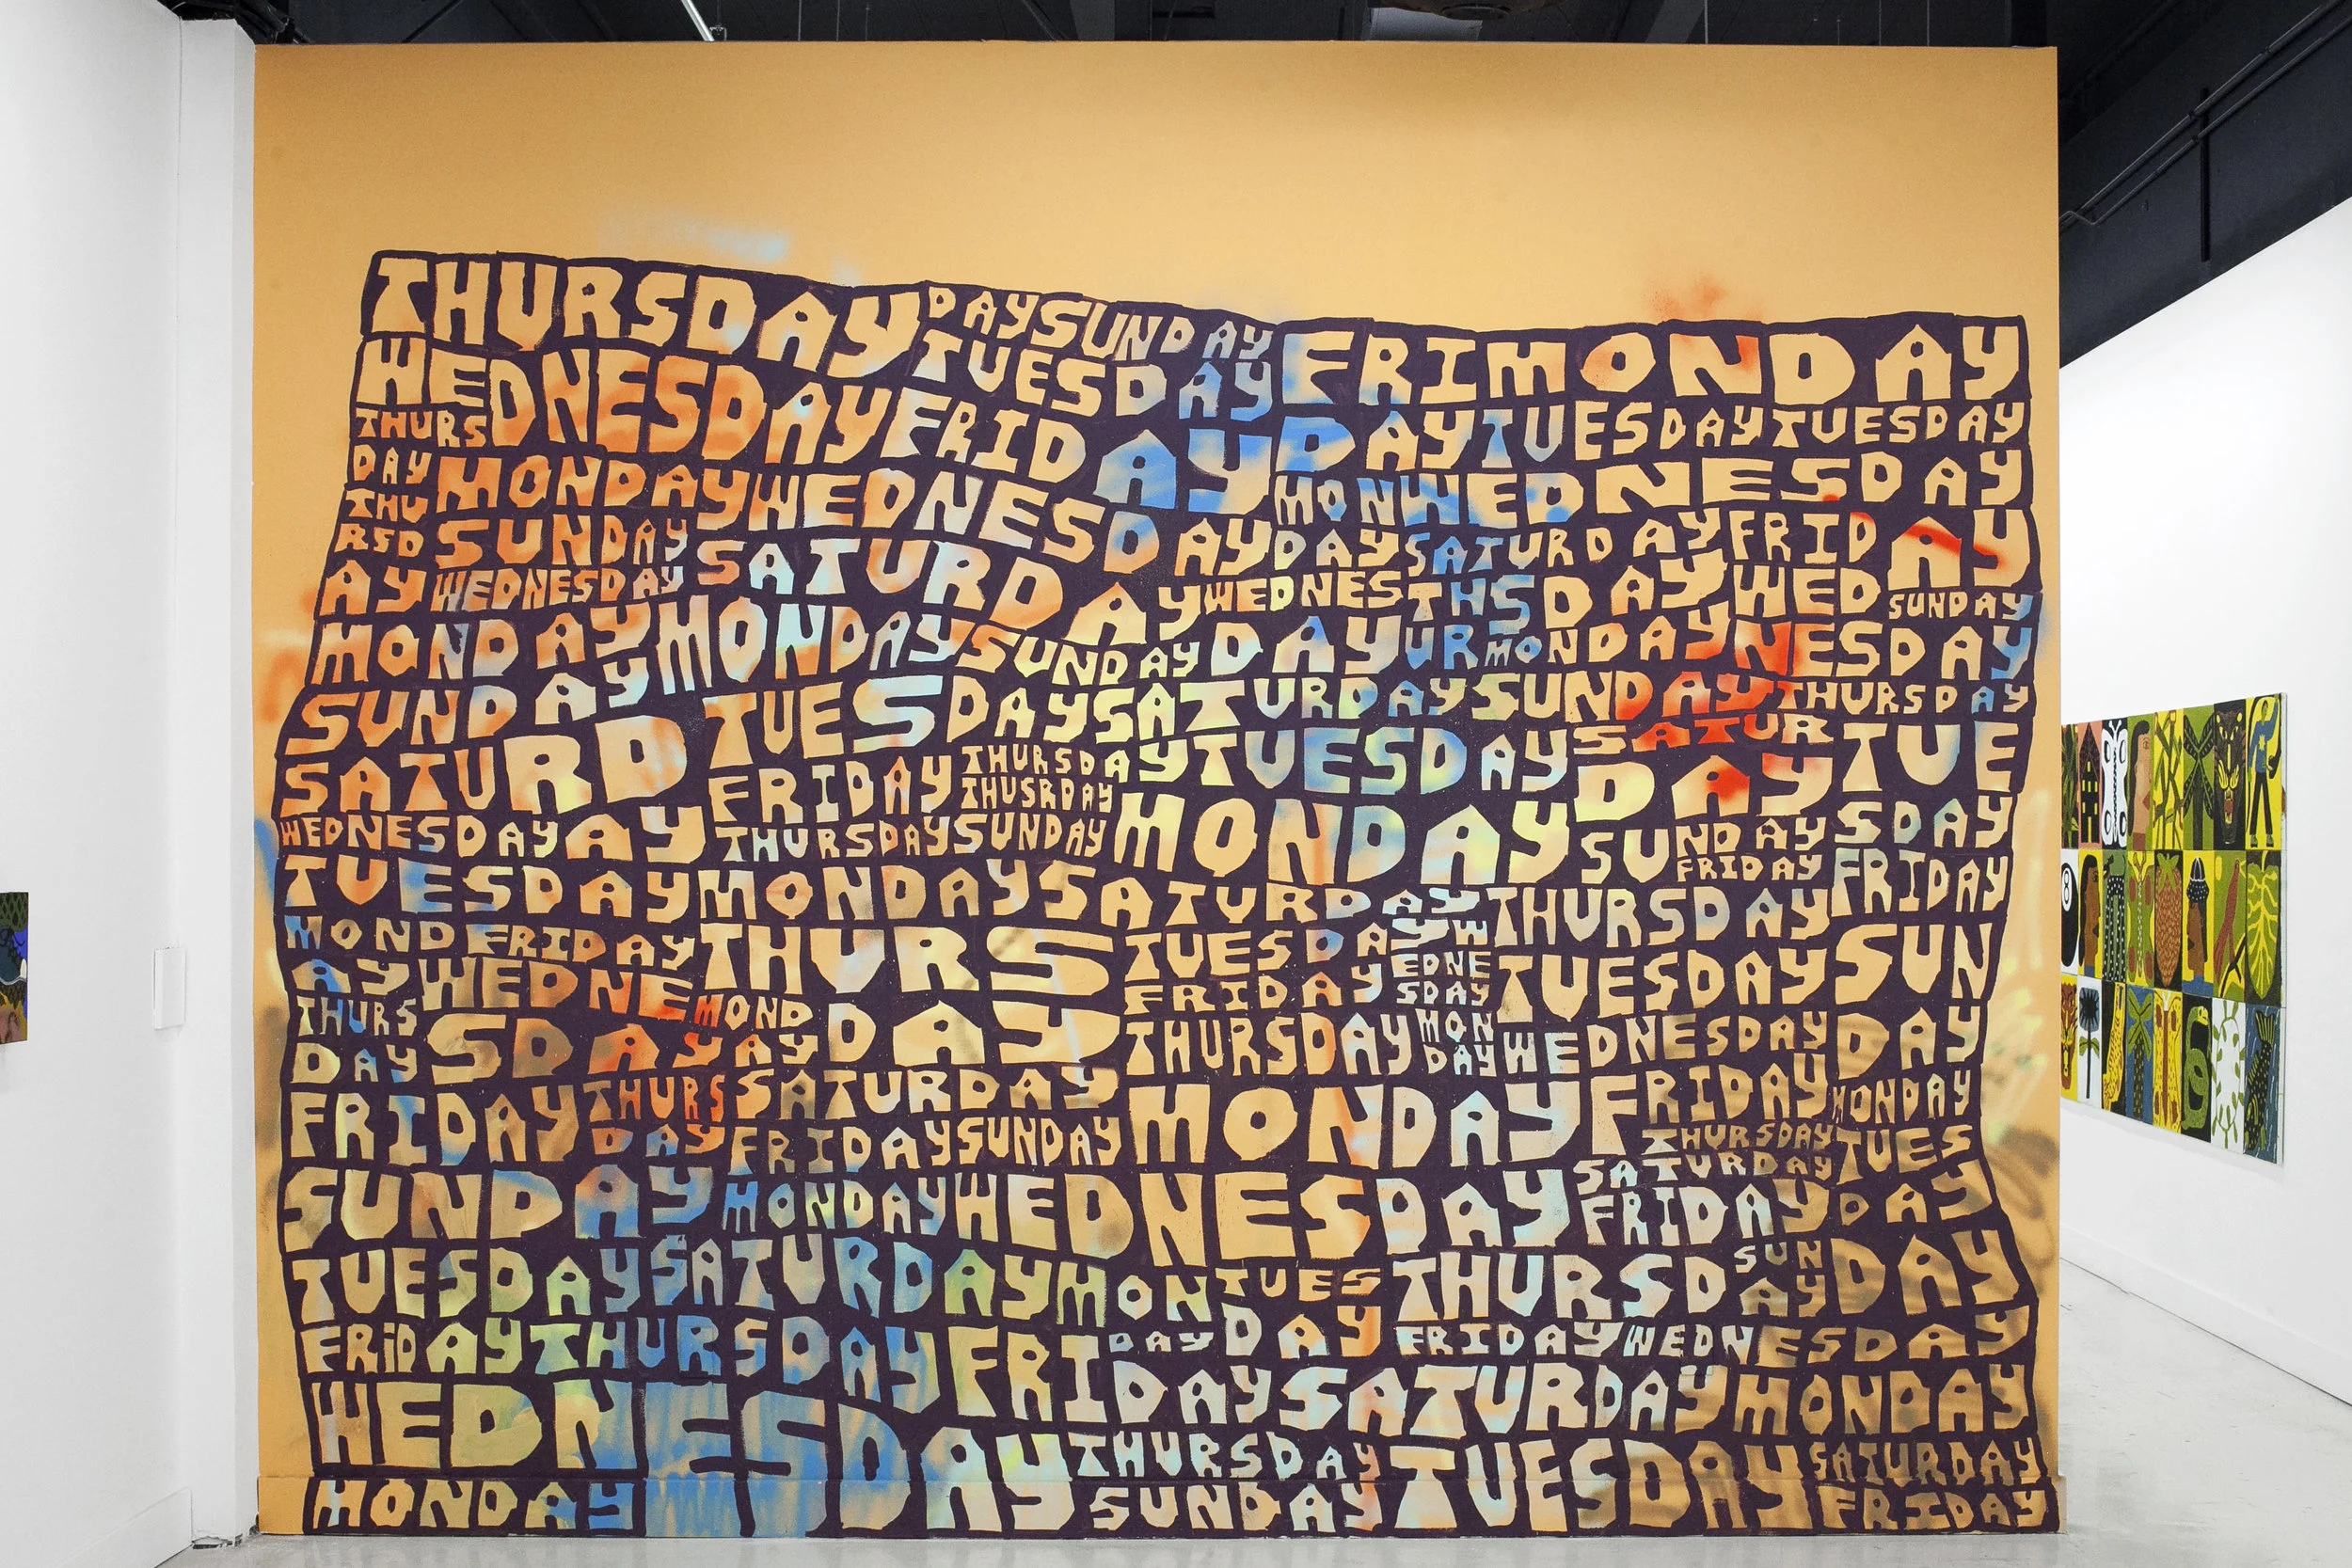 THURSDAY DAY SUNDAY FRIMONDAY
TUESDAY
WEDNESDAY FRIDAY DAY TUESDAY TUESDAY
THURS
DAY MONDAY WEDNESDAY MON WEDNESDAY
THU
RSD SUNDAY SATURDAY DAY SATURDAY FRIDAY
AY WEDNESDAY WEDNES THS DAY WED SUNDAY
MONDAY MONDAY SUNDAY DAY UR MONDAY NESDAY
SUNDAY TUESDAY SATURDAY SUNDAY THURSDAY
SATURD FRIDAY THURSDAY TUESDAY SATUR TUE
THUSRDAY
WEDNESDAY AY THURSDAY SUNDAY MONDAY DAY SUNDAY SDAY
FRIDAY FRIDAY
TUESDAY MONDAY SATURDAY THURSDAY
MOND FRIDAY THURS TUESDAY YW SUN
AY WEDNE FRIDAY EDNE TUESDAY
SDAY
THURS SDAY MOND DAY THURSDAY MON WEDNESDAY DAY
DAY AY DAY
FRIDAY THURS SATURDAY MONDAY FRIDAY MONDAY
DAY FRIDAY SUNDAY THURSDAY TUES
SATURDAY
SUNDAY MONDAY WEDNESDAY FRIDAY DAY
TUESDAY SATURDAY MON TUES THURSD SUN DAY
AY
FRiDAY THURSDAY FRI DAY DAY FRIDAY WEDNESDAY
DAY SATURDAY MONDAY
WEDNESDAY THURSDAY TUESDAY SATURDAY
MONDAY SUNDAY FRIDAY
8